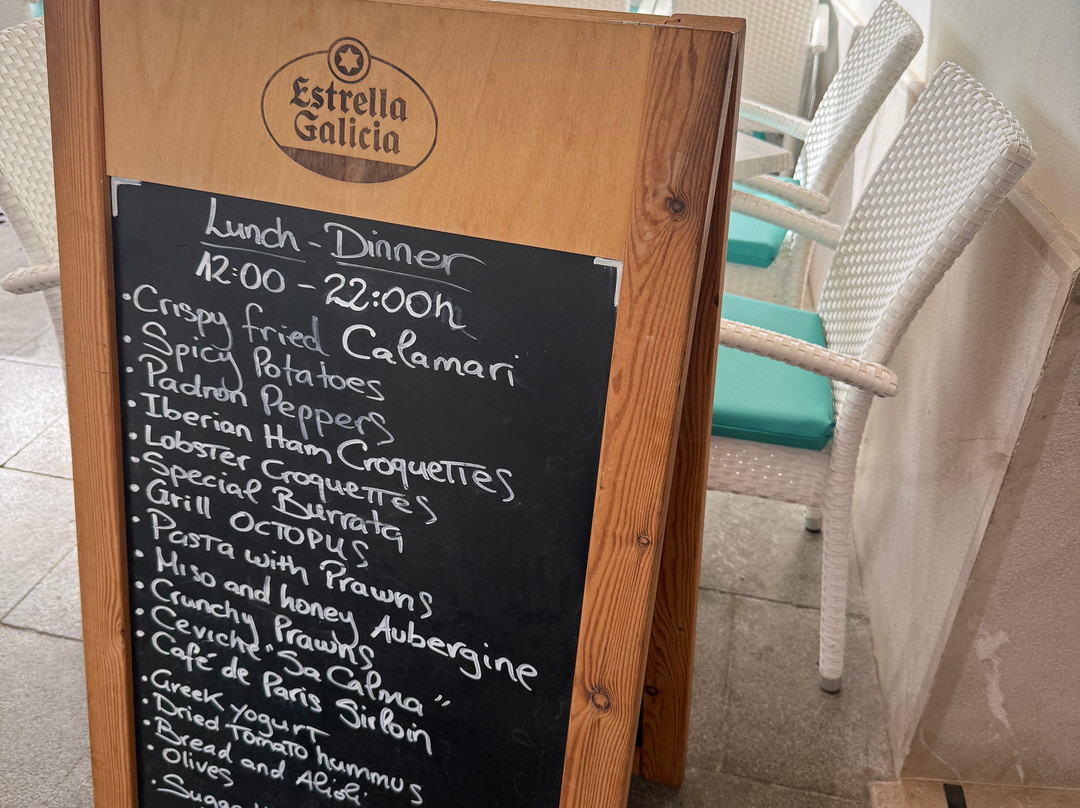 Estrella
Galicia
Lunch - Dinner
12:00 - 22:00h
• Crispy fried Calamari
• Spicy Potatoes
• Padron Peppers
• Iberian Ham Croquettes
• Lobster Croquettes
• Special Burrata
• Grill Octopus
• Pasta with Prawns
• Miso and honey Aubergine
• Crunchy Prawns
• Ceviche "Sa Calma"
• Café de Paris Sirloin
• Greek yogurt
• Dried Tomato hummus
• Bread and Alioli
• Olives